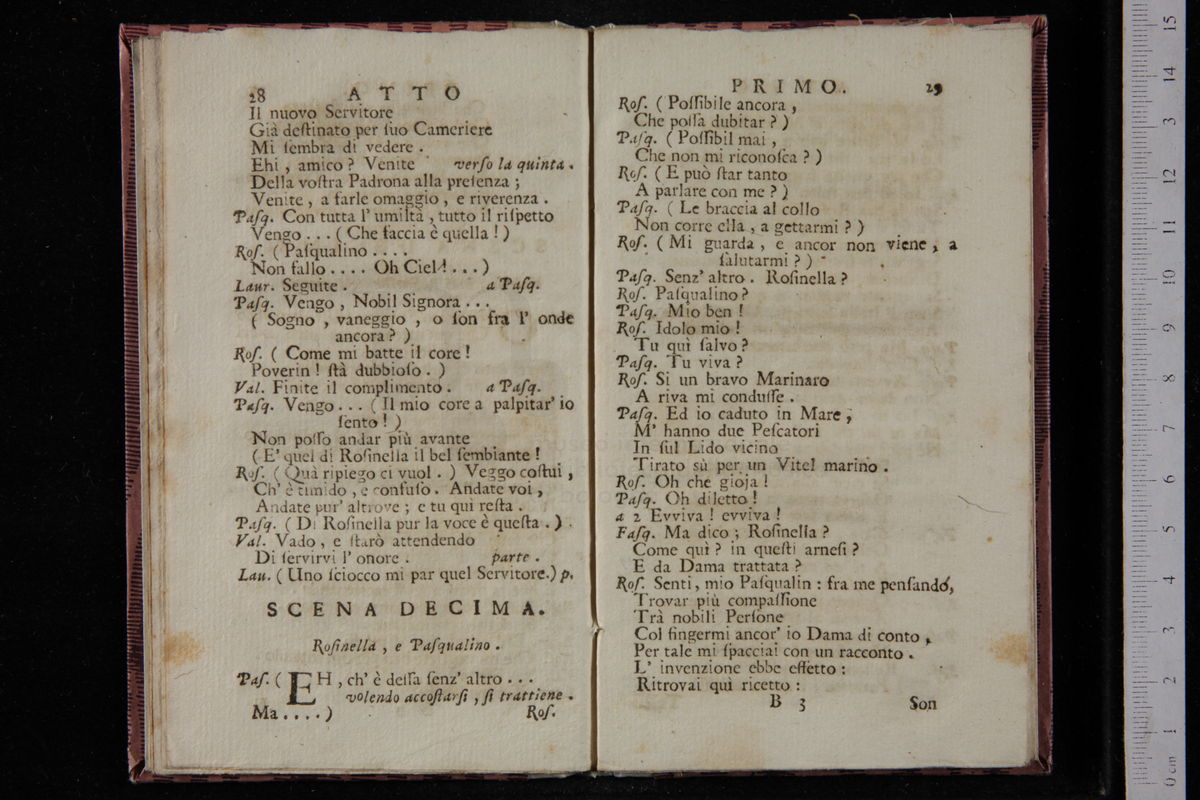 28 ATTO
Il nuovo Servitore
Già deſtinato per ſuo Cameriere
Mi ſembra di vedere .
Ehi , amico ? Venite verſo la quinta .
Della voſtra Padrona alla preſenza ;
Venite , a farle omaggio , e riverenza .
Paſq. Con tutta l' umiltà , tutto il riſpetto
Vengo . . . ( Che faccia è quella ! )
Roſ. ( Paſqualino . . . .
Non fallo . . . . Oh Ciel ! . . . )
Laur. Seguite . a Paſq.
Paſq. Vengo , Nobil Signora . . .
( Sogno , vaneggio , o ſon fra l' onde
ancora ? )
Roſ. ( Come mi batte il core !
Poverin ! ſtà dubbioſo . )
Val. Finite il complimento . a Paſq.
Paſq. Vengo . . . ( Il mio core a palpitar' io
ſento ! )
Non poſſo andar più avante
( E' quel di Roſinella il bel ſembiante !
Roſ. ( Quà ripiego ci vuol . ) Veggo coſtui ,
Ch' è timido , e confuſo . Andate voi ,
Andate pur' altrove ; e tu qui reſta .
Paſq. ( Di Roſinella pur la voce è queſta . )
Val. Vado , e ſtarò attendendo
Di ſervirvi l' onore . parte .
Lau. ( Uno ſciocco mi par quel Servitore.) p.
SCENA DECIMA.
Roſinella , e Paſqualino .
Paſ. ( EH , ch' è deſſa ſenz' altro . . .
volendo accoſtarſi , ſi trattiene .
Ma . . . . ) Roſ.
PRIMO. 29
Roſ. ( Poſſibile ancora ,
Che poſſa dubitar ? )
Paſq. ( Poſſibil mai ,
Che non mi riconoſca ? )
Roſ. ( E può ſtar tanto
A parlare con me ? )
Paſq. ( Le braccia al collo
Non corre ella , a gettarmi ? )
Roſ. ( Mi guarda , e ancor non viene , a
ſalutarmi ? )
Paſq. Senz' altro . Roſinella ?
Roſ. Paſqualino ?
Paſq. Mio ben !
Roſ. Idolo mio !
Tu quì ſalvo ?
Paſq. Tu viva ?
Roſ. Si un bravo Marinaro
A riva mi conduſſe .
Paſq. Ed io caduto in Mare ,
M' hanno due Peſcatori
In ſul Lido vicino
Tirato sù per un Vitel marino .
Roſ. Oh che gioja !
Paſq. Oh diletto !
a 2 Evviva ! evviva !
Faſq. Ma dico ; Roſinella ?
Come quì ? in queſti arneſi ?
E da Dama trattata ?
Roſ. Senti , mio Paſqualin : fra me penſando,
Trovar più compaſſione
Trà nobili Perſone
Col fingermi ancor' io Dama di conto ,
Per tale mi ſpacciai con un racconto .
L' invenzione ebbe effetto :
Ritrovai quì ricetto :
B 3 Son